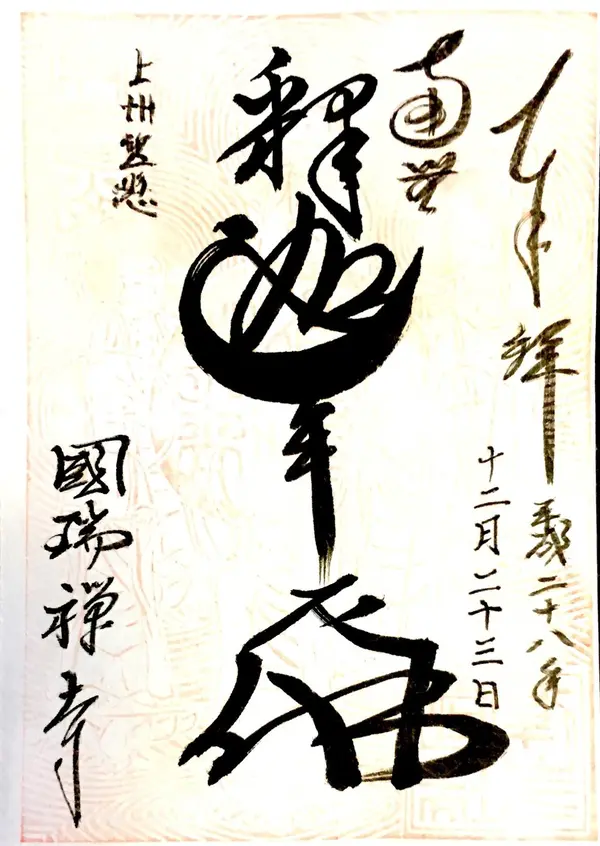 奉拝
平成二十八年
十二月二十三日
南無
釋迦牟尼佛
上州
國瑞禅寺